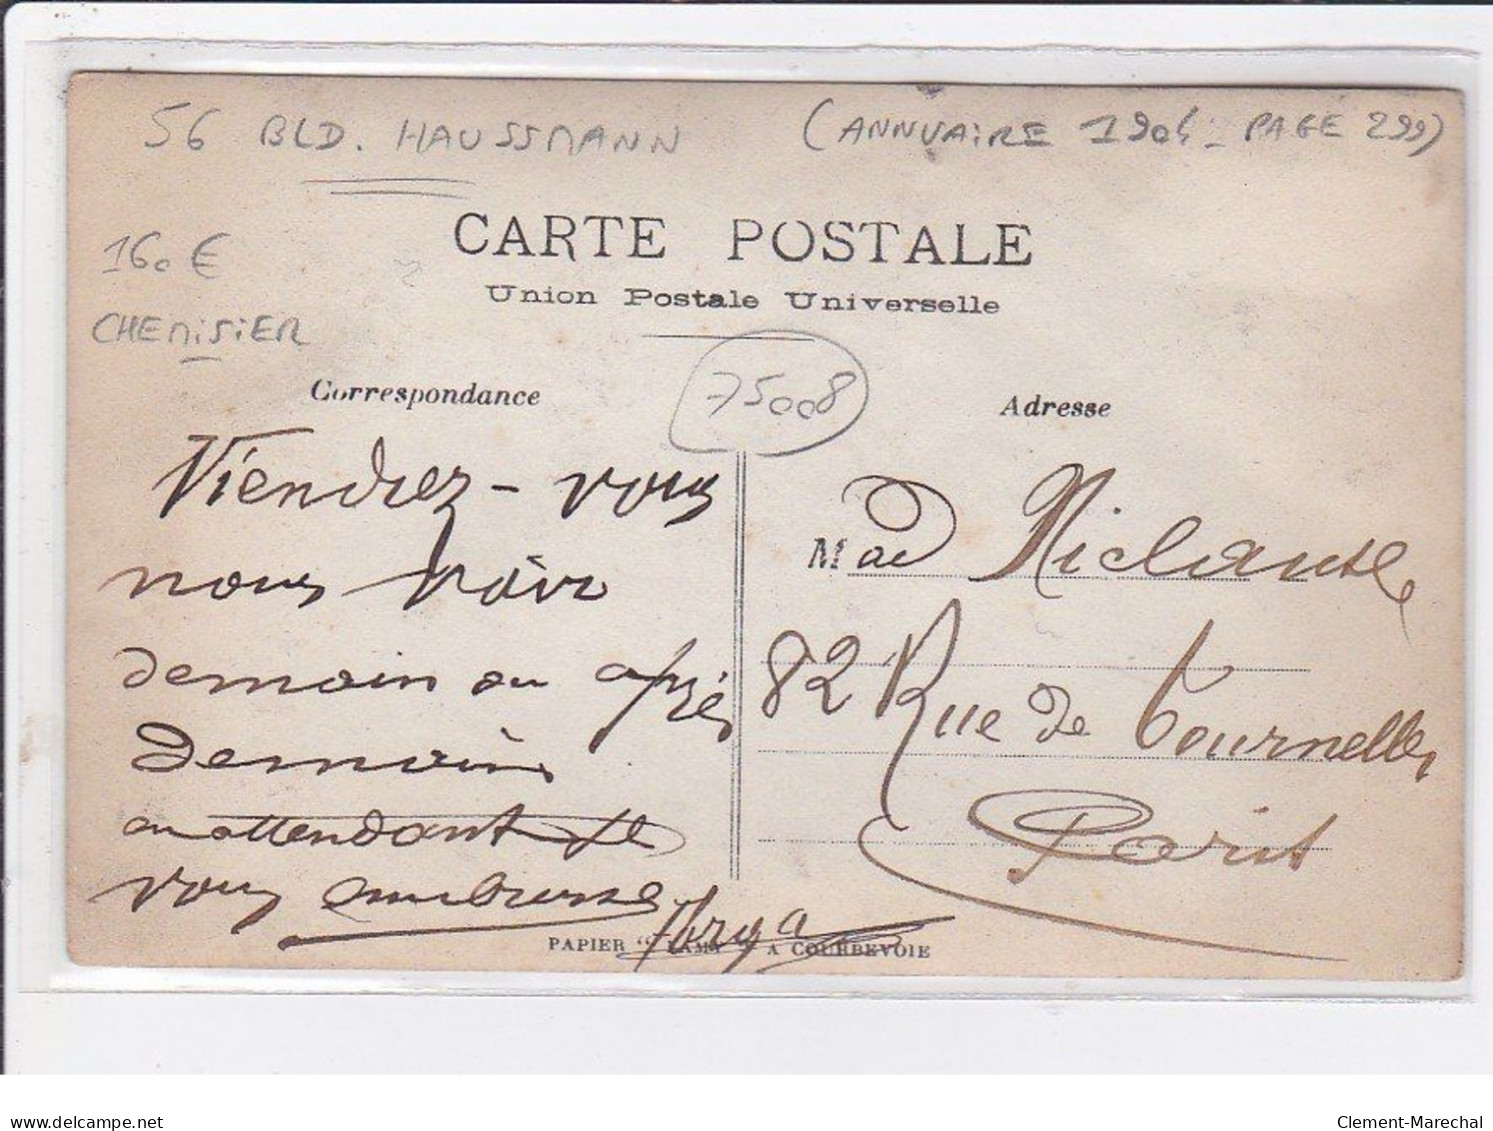 56 BLD. HAUSSMANN (ANNUAIRE 1904 - PAGE 299)
160 €
CHEMISIER
CARTE POSTALE
Union Postale Universelle
75008
Correspondance
Adresse
Viendrez-vous
nous voir
demain ou après
Demain
en attendant je
vous embrasse
Marga
Made Niclausse
82 Rue de Tournelles
Paris
PAPIER "LAMY" A COURBEVOIE
delcampe.net
Clement-Marechal